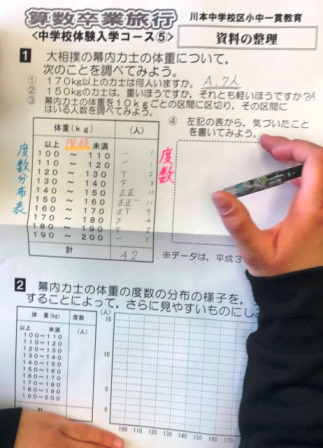 算数卒業旅行
川本中学校区小中一貫教育
<中学校体験入学コース⑤>
資料の整理
1 大相撲の幕内力士の体重について，
次のことを調べてみよう。
① 170kg以上の力士は何人いますか。 A. 7人
② 150kgの力士は，重いほうですか，それとも軽いほうですか？
③ 幕内力士の体重を10kgごとの区間に区切り，その区間に
はいる人数を調べてみよう。
④ 左記の表から，気づいたこと
を書いてみよう。
体重(kg) (人)
以上 階級 未満
100 ～ 110 一 1
110 ～ 120 一 1
120 ～ 130 T 2
130 ～ 140 下 3
140 ～ 150 正正 10
150 ～ 160 正正一 11
160 ～ 170 正T 7
170 ～ 180 4
180 ～ 190
190 ～ 200 1
計 42
度数分布表
度数
※データは，平成3
2 幕内力士の体重の度数の分布の様子を，
することによって，さらに見やすいものにし
体重(kg) 度数
以上 未満 (人)
100～110
110～120
120～130
130～140
140～150
150～160
160～170
170～180
180～190
190～200
計
(人)
15
10
5
0
100 110 120 130 140 150 160 170